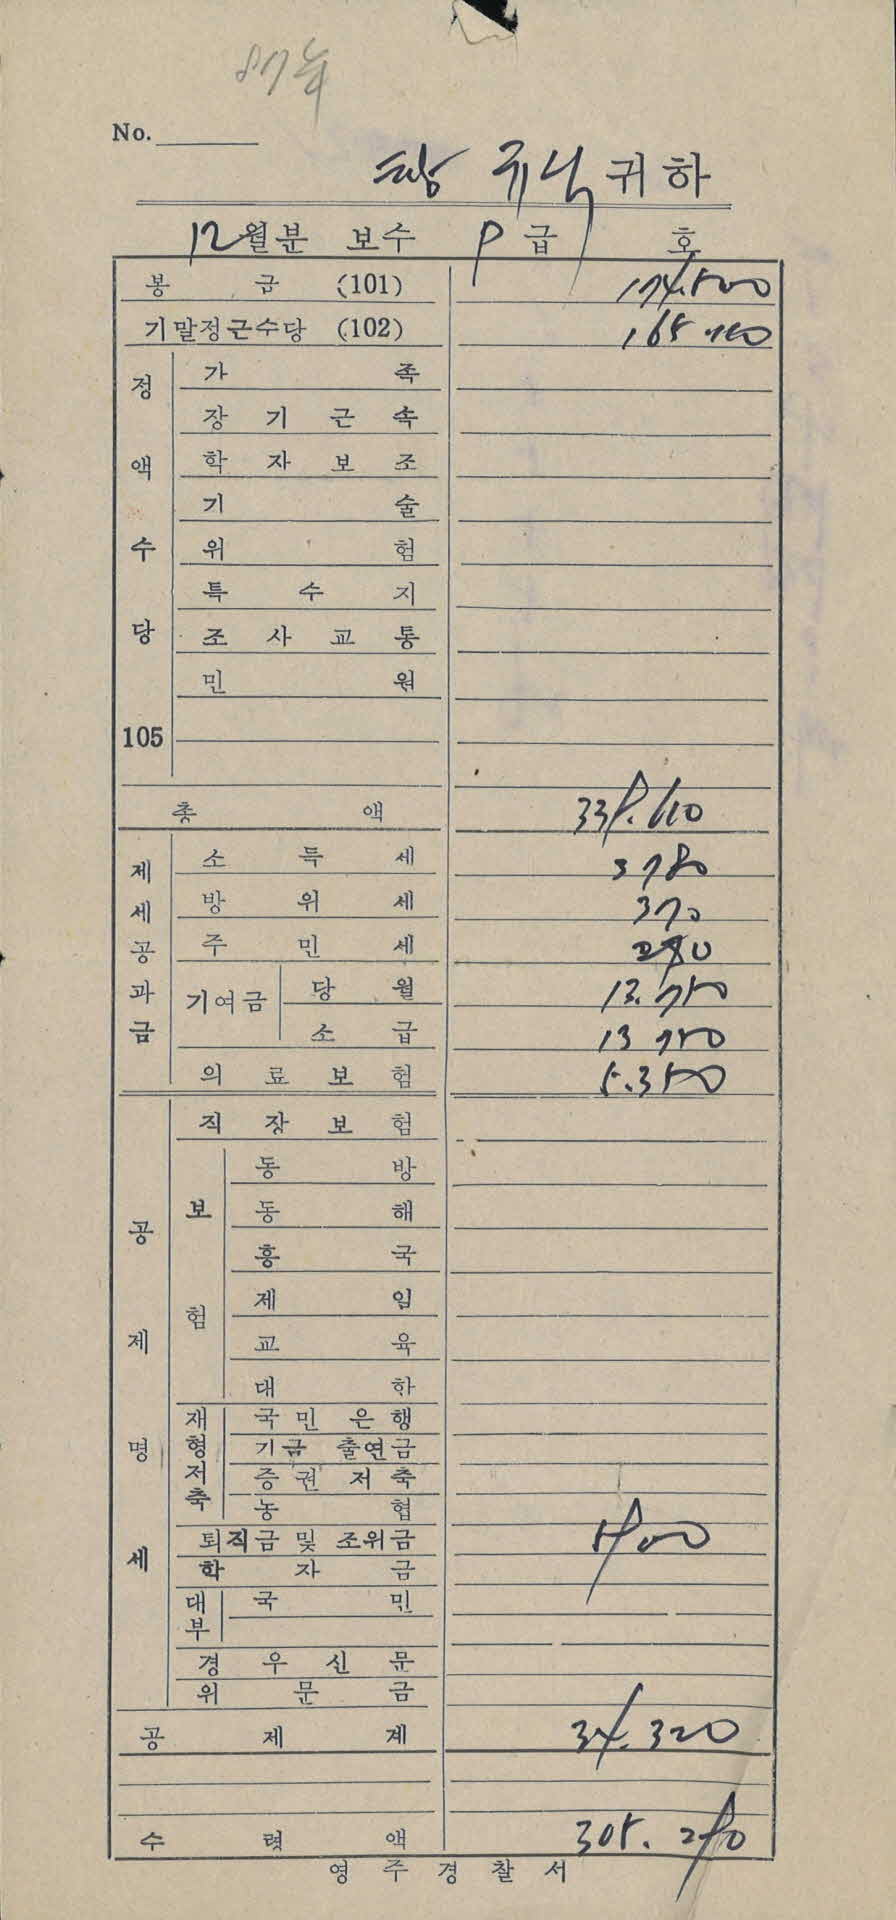 87年
No.
귀하
12월분 보수 9급 호
봉 금 (101) 174.500
기말정근수당 (102)
정 액 수 당 105
가 족
장 기 근 속
학 자 보 조
기 술
위 험
특 수 지
조 사 교 통
민 원
총 액 339.610
제 세 공 과 금
소 득 세 3780
방 위 세 370
주 민 세 280
기여금 당 월 13.750
소 급 13 750
의 료 보 험 5.350
공 제 명 세
직 장 보 험
보 험
동 방
동 해
흥 국
제 일
교 육
대 한
재 형 저 축
국 민 은 행
기금 출연금
증 권 저 축
농 협
퇴직금 및 조위금
학 자 금
대 부
국 민
경 우 신 문
위 문 금
공 제 계 34.320
수 령 액 305.290
영 주 경 찰 서